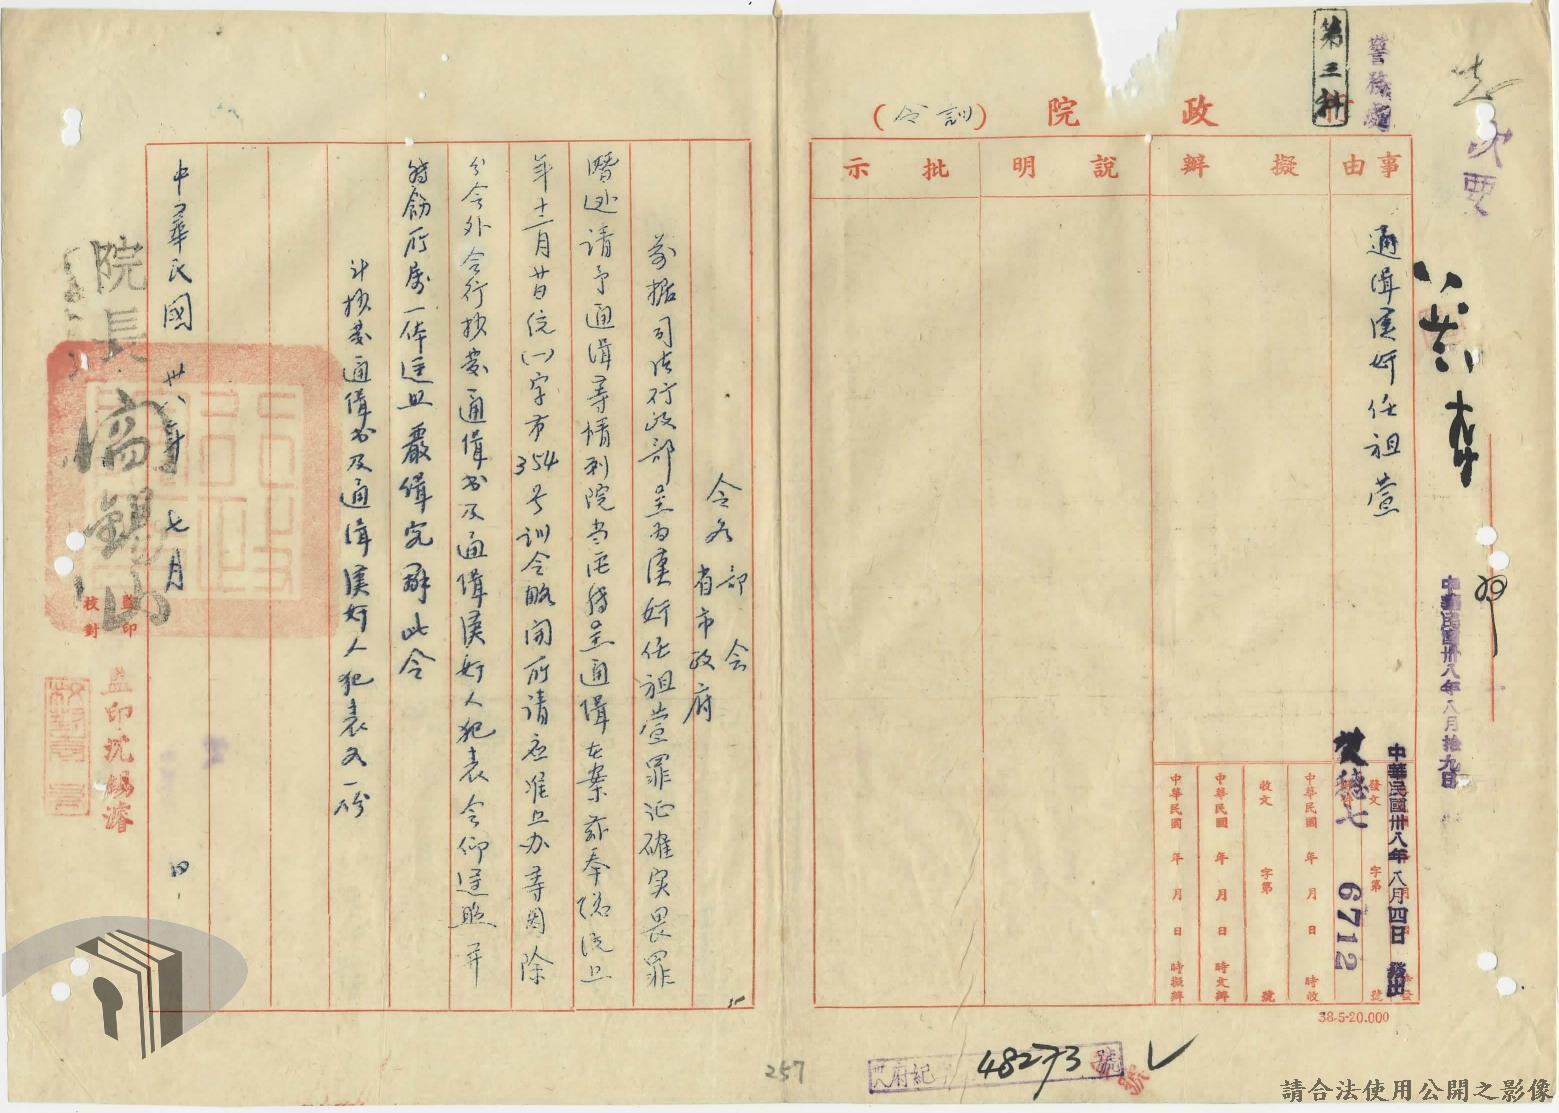 警務處
第三科
行政院（訓令）
事由
擬辦
說明
批示
通緝漢奸任祖萱
發文
字第
號
中華民國 年 月 日 時收
收文
字第
號
中華民國 年 月 日 時文辦
中華民國 年 月 日 時擬辦
中華民國卅八年八月四日 發出
穗七 6712
中華民國卅八年八月拾九日
38-5-20.000
令各 部会
省市政府
案据司法行政部呈为漢奸任祖萱罪证確实畏罪
潛逃请予通缉等情到院当经转呈通缉在案兹奉 總统卅
年十二月廿日统(一)字第354号训令略開所请应准照办等因除
分令外合行抄發通缉书及通缉漢奸人犯表令仰遵照并
转飭所属一体遵照嚴缉究辦此令
计抄發通缉书及通缉漢奸人犯表各一份
中華民國卅八年七月 日
院長閻錫山
監印
校對
監印沈錫濬
257
府紀 48273 號
請合法使用公開之影像